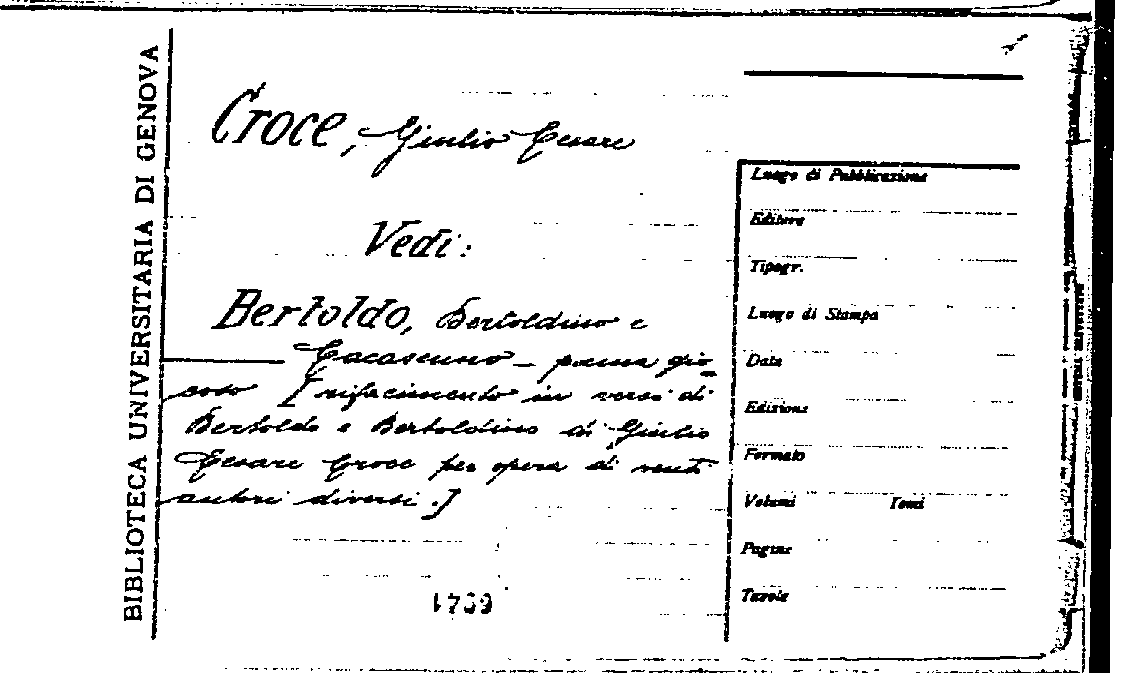 BIBLIOTECA UNIVERSITARIA DI GENOVA
Croce, Giulio Cesare
Vedi:
Bertoldo, Bertoldino e
Cacasenno - poema gio-
coso [rifacimento in versi di
Bertoldo e Bertoldino di Giulio
Cesare Croce per opera di venti
autori diversi.]
Luogo di Pubblicazione
Editore
Tipogr.
Luogo di Stampa
Data
Edizione
Formato
Volumi Tomi
Pagine
Tavole